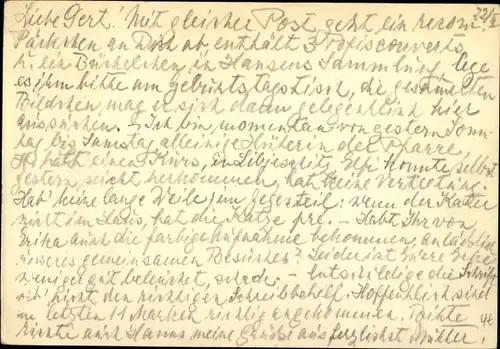 Liebe Gert! Mit gleicher Post geht ein 22/8
Päckchen an Dich ab, enthält 3
ein in Hansens Sammlung, lege
es ihm bitte am Geburtstagstisch, die gesamten
Bildchen mag er sich dann gelegentlich hier
aussuchen. – Ich bin momentan von gestern Sonn-
tag bis Samstag alleinige Hüterin der Pfarre
hat einen Kurs, konnte selbst
gestern nicht herkommen, hat keine Vertretung.
Hab keine lange Weile, im Gegenteil: wenn der Kater
nicht im Haus, hat die Katze – Habt Ihr von
Erika auch die farbige Aufnahme bekommen, anlässlich
unseres gemeinsamen Besuches? Leider ist Eure
weniger gut beleuchtet, schade – entschuldige die Schrift,
nicht den richtigen Schreibbehelf. Hoffentlich sind
die letzten 11 Marken richtig angekommen. Bitte
richte auch Hanns meine Grüsse aus herzlichst Mutter!